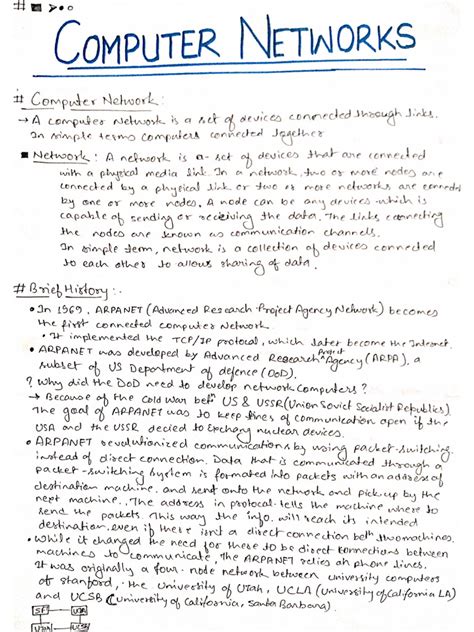 COMPUTER NETWORKS
# Computer Network:
→ A computer network is a set of devices connected through links.
In simple terms computers connected together
■ Network: A network is a set of devices that are connected
with a physical media link. In a network, two or more nodes are
connected by a physical link or two or more networks are connected
by one or more nodes. A node can be any devices which is
capable of sending or receiving the data. The links connecting
the nodes are known as communication channels.
In simple term, network is a collection of devices connected
to each other to allow sharing of data.
# Brief History:
• In 1969, ARPANET (Advanced Research Project Agency Network) becomes
the first connected computer network.
• It implemented the TCP/IP protocol, which later become the Internet.
• ARPANET was developed by Advanced Research Project Agency (ARPA), a
subset of US Department of defence (DoD).
? Why did the DoD need to develop network computers?
→ Because of the Cold War betn US & USSR (Union Soviet Socialist Republics)
The goal of ARPANET was to keep lines of communication open if the
USA and the USSR decied to exchang nuclear devices.
• ARPANET revolutionized communications by using packet-switching
instead of direct connection. Data that is communicated through a
packet-switching system is formated into packets with an address of
destination machine. and sent onto the network and pick up by the
next machine. The address in protocal tells the machine where to
send the packets. This way the info. will reach its intended
destination, even if there isn't a direct connection betn two machines.
• While it changed the need for these to be direct connections between
machines to communicate, the ARPANET relies oh phone lines.
It was originally a four-node network between university computers
at Stanford, the University of Utah, UCLA (University of California LA)
and UCSB (University of California, Santa Barbana).